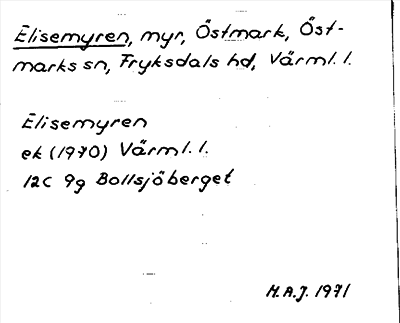 Elisemyren, myr, Östmark, Öst-
marks sn, Fryksdals hd, Värml. l.
Elisemyren
ek (1970) Värml. l.
12C 9g Bollsjöberget
H.A.J. 1971